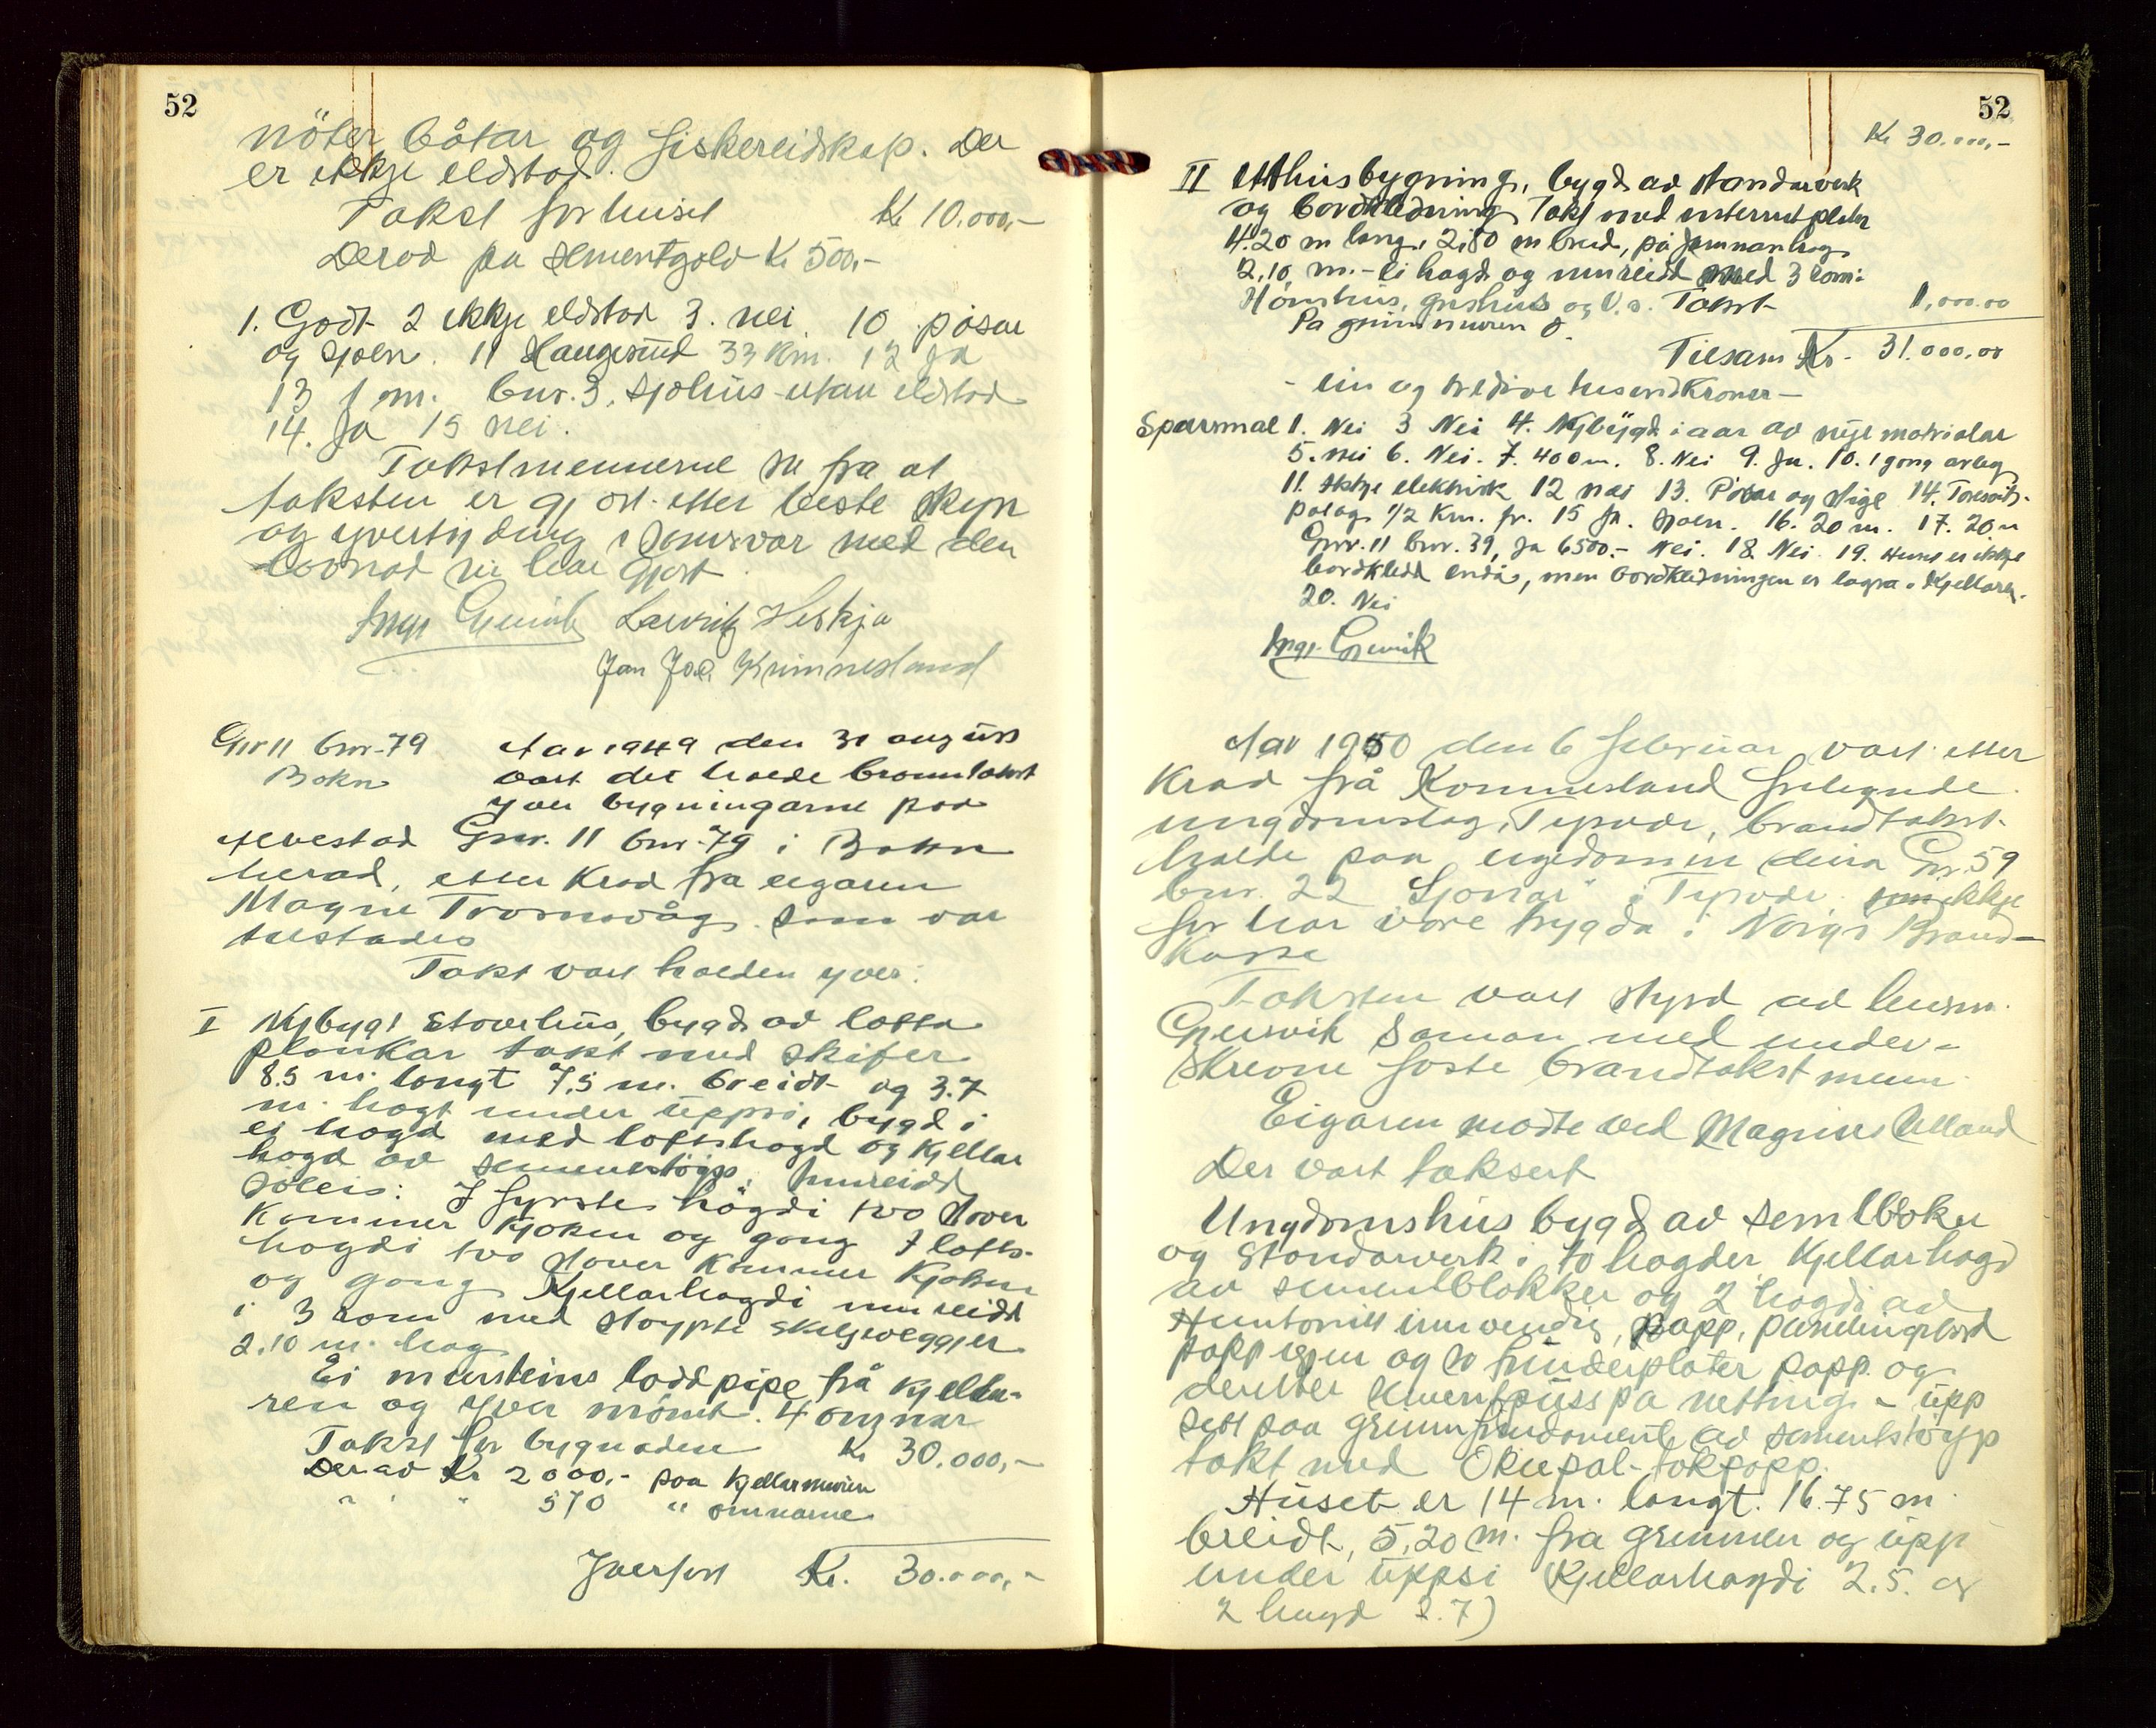 52
nöter båtar og fiskereidskap. Der
er ikkje eldstad.
Takst for huset Kr 10.000,-
Derav på sementgolv Kr 500,-
1. Godt 2 ikkje eldstad 3. nei. 10 pøsar
og sjøen. 11 Haugesund 33 km. 12 Ja
13 1 m. bnr. 3, sjøhus utan eldstad
14. Ja 15 nei.
Takstmennerne ser fra at
taksten er gjort etter beste skyn
og yvertyding i samsvar med den
lovnad me har gjort
Inge Gjervik Lauritz Heskja
Jan Joa. Krimnesland
Gnr 11 bnr. 79
Bokn
Aar 1949 den 31 august
vart det halde branntakst
yver bygningarne paa
Alvestad Gnr. 11 bnr. 79 i Bokn
herad, etter krav fra eigaren
Magne Trosnavåg som var
tilstades
Takst vart halden yver:
I Nybygt stovehus, bygd av lafta
plankar takt med skifer
8.5 m. langt 7,5 m. breidt og 3.7
m. høgt under uppsi, bygd i
ei høgd med loftshøgd og kjellar
høgd av sementstøyp. Innreidd
soleis: I fyrste högdi tvo stover
kammer kjøken og gang I lofts-
høgdi tvo stover kammer kjøken
og gang Kjellarhøgdi innreidd
i 3 rom med støypte skiljevegger
2.10 m. høg
Ei mursteins loddpipe frå kjella-
ren og yver mönet. 4 omnar
Takst for bygnaden Kr 30.000,-
Derav Kr 2000,- paa kjellarmuren
" " " 570 " omnarne
Yverført Kr. 30.000,-
52
Kr 30.000,-
II Uthusbygning, bygd av standarverk
og bordkledning Takt med eternitplater
4.20 m lang, 2,80 m breid,
2,10 m. - ei høgd og innreidd med 3 rom:
Hønshus, grishus og V.s. Takst 1,000.00
Pa grunnmuren 0
Tilsam Kr. 31.000,00
- ein og tredive tusendkroner -
Spørsmal 1. Nei 3 Nei 4. Nybÿgd i aar av nye matrialar
5. nei 6. Nei. 7. 400 m. 8. Nei 9. Ja. 10. 1 gong arleg
11. ikkje elektrisk 12 nei 13. Pøsar og stige 14.
1/2 km. fr. 15 Ja. Sjøen. 16. 20 m. 17. 20 m
Gnr. 11 bnr. 39, Ja 6500.- Nei. 18. Nei 19. Huset er ikkje
bordkledd endå, men bordkledningen er lagra i kjellaren.
20. Nei
Inge Gjervik
Aar 1950 den 6 februar vart etter
krav frå Kommesland frilynde
ungdomslag, Tysvær, brandtakst
halde paa eigedomen deira Gnr. 59
bnr. 22 "Sjonar" i Tysvær ikkje
før har vore trygda i Norges Brand-
kasse
Taksten vart styrd av lensm.
Gjervik saman med under-
skrevne faste brandtakstmenn
Eigaren møtte ved Magnus Aaland
Der vart taksert
Ungdomshus bygd av sementbloker
og Standarverk i to høgder Kjellarhøgd
av sementblokker og 2 høgdi av
Huntonitt innvendig, papp, panelingsbord
papp igjen og papp og
deretter sementpuss pa netting - upp
sett paa grunnfundament av sementstöyp
takt med takpapp.
Huset er 14 m. langt. 16.75 m
breidt, 5,20 m. fra grunnen og upp
under uppsi (Kjellarhøgdi 2.5. og
2 høgd 2.7)